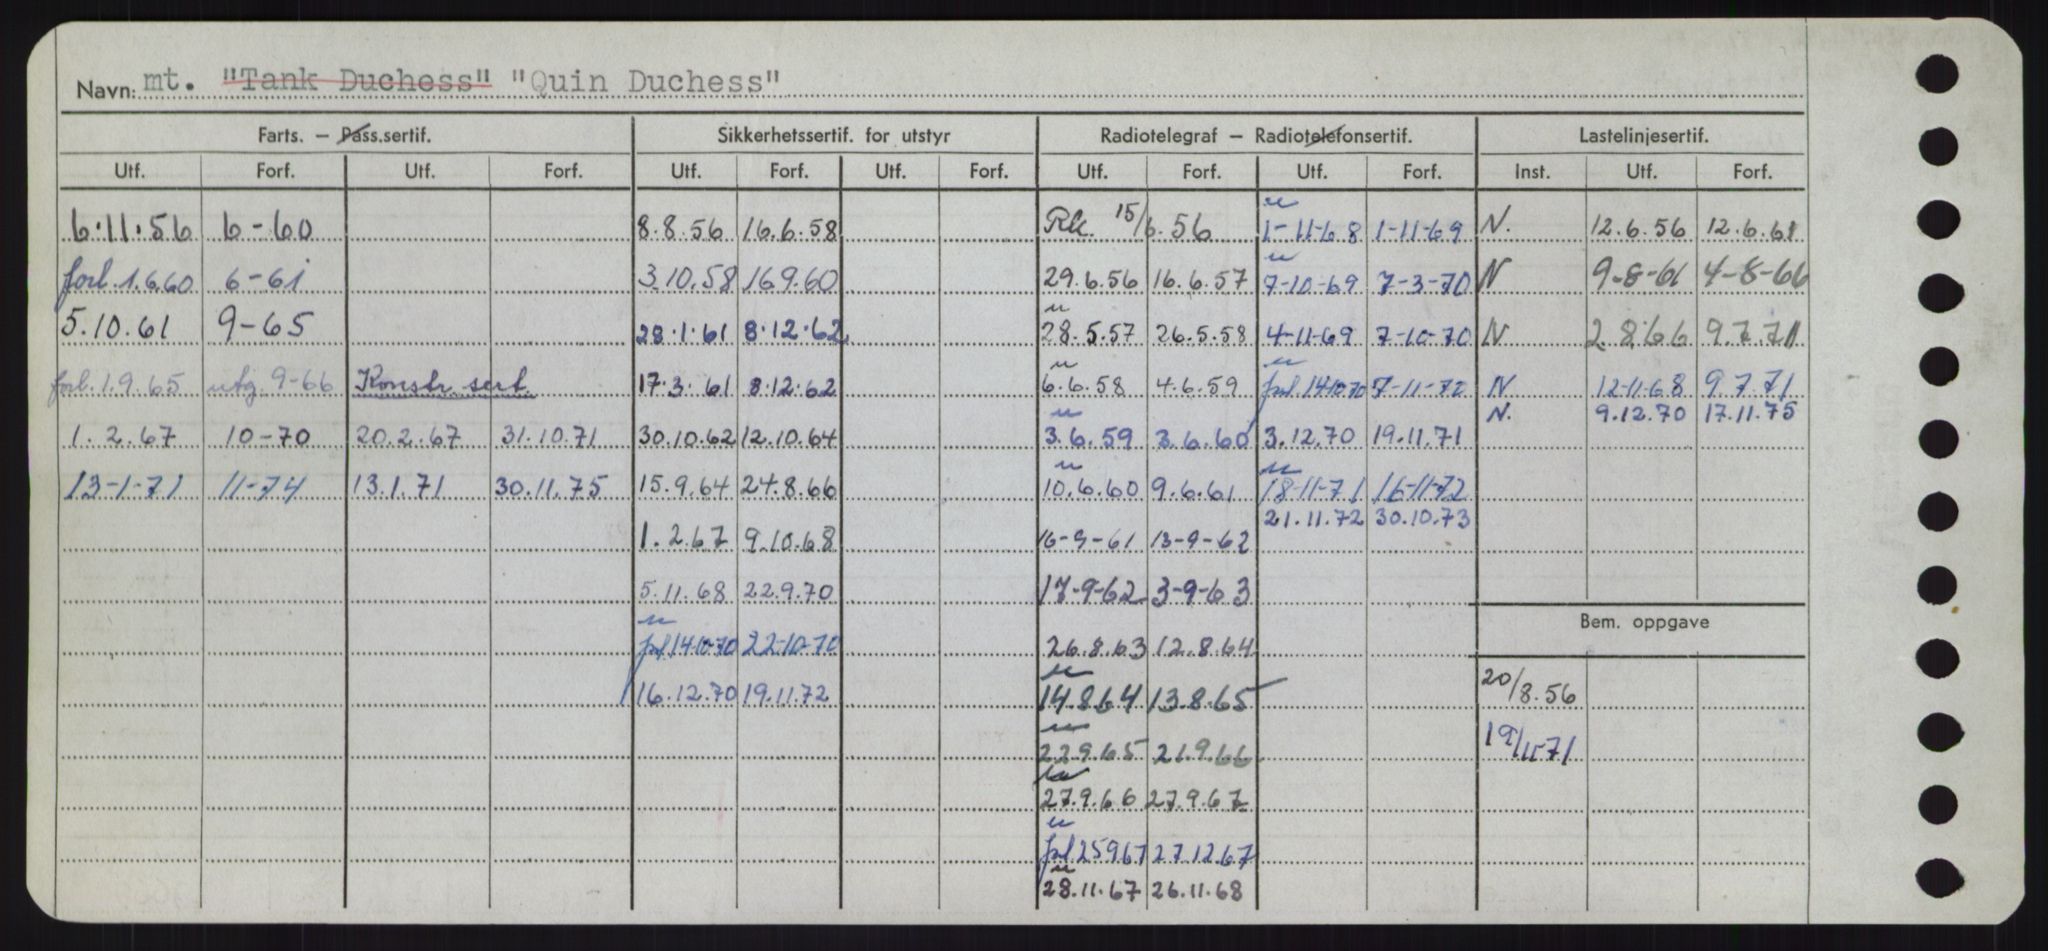 Navn: mt. "Tank Duchess" "Quin Duchess"
Farts. — Pass.sertif. Sikkerhetssertif. for utstyr Radiotelegraf — Radiotelefonsertif. Lastelinjesertif.
Utf. Forf. Utf. Forf. Utf. Forf. Utf. Forf. Utf. Forf. Utf. Forf. Inst. Utf. Forf.
6.11.56 6-60 8.8.56 16.6.58 Rk. 15/6.56 1-11-68 1-11-69 N. 12.6.56 12.6.61
forl. 1.6.60 6-61 3.10.58 16.9.60 29.6.56 16.6.57 7-10-69 7-3-70 N 9-8-61 4-8-66
5.10.61 9-65 28.1.61 8.12.62 28.5.57 26.5.58 4-11-69 7-10-70 N 2.8.66 9.7.71
forl. 1.9.65 utg. 9-66 Konstr. sert. 17.3.61 8.12.62 6.6.58 4.6.59 forl. 14-10-70 7-11-70 N 12-11-68 9.7.71
N. 9.12.70 17.11.75
1.2.67 10-70 20.2.67 31.10.71 30.10.62 12.10.64 3.6.59 3.6.60 3.12.70 19.11.71
13-1-71 11-74 13.1.71 30.11.75 15.9.64 24.8.66 10.6.60 9.6.61 18-11-71 16-11-72
21.11.72 30.10.73
1.2.67 9.10.68 16-9-61 13-9-62
5.11.68 22.9.70 17-9-62 3-9-63
Bem. oppgave
forl 14-10-70 22-10-70 26.8.63 12.8.64
16.12.70 19.11.72 14.8.64 13.8.65 20/8.56
22.9.65 21.9.66 19/11-71
27.9.66 27.9.67
forl 25.9.67 27.12.67
28.11.67 26.11.68